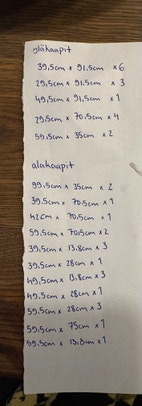 yläkaapit
39,5cm x 91,5cm x 6
29,5cm x 91,5cm x 3
49,5cm x 91,5cm x 1
29,5cm x 70,5cm x 4
59,5cm x 35cm x 2
alakaapit
99,5cm x 35cm x 2
39,5cm x 70,5cm x 1
42cm x 70,5cm x 1
59,5cm x 70,5cm x 2
39,5cm x 13,8cm x 3
39,5cm x 28cm x 1
49,5cm x 13,8cm x 3
49,5cm x 28cm x 1
59,5cm x 28cm x 3
59,5cm x 75cm x 1
59,5cm x 13,8cm x 1